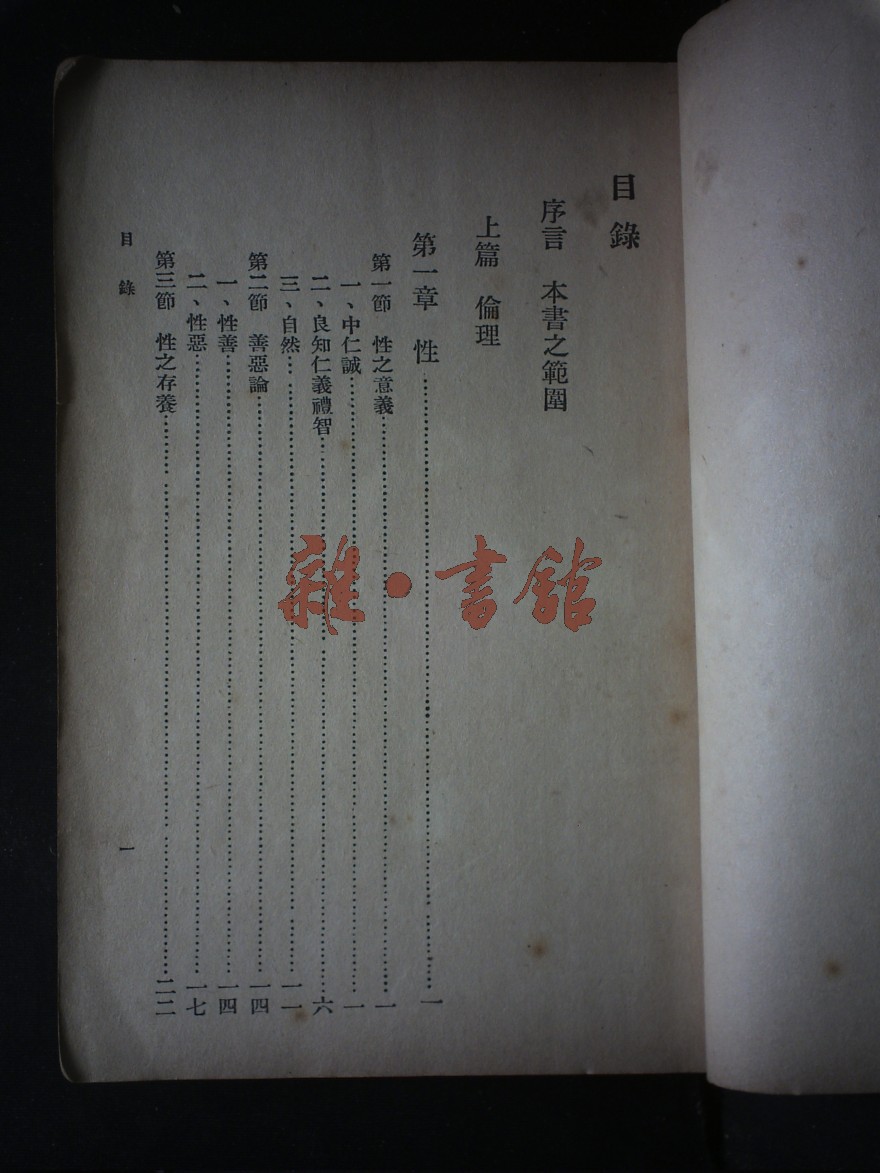 目錄
序言 本書之範圍
上篇 倫理
第一章 性……一
第一節 性之意義……一
一、中仁誠……一
二、良知仁義禮智……六
三、自然……一一
第二節 善惡論……一四
一、性善……一四
二、性惡……一七
第三節 性之存養……二二
目錄
一
雜·書館